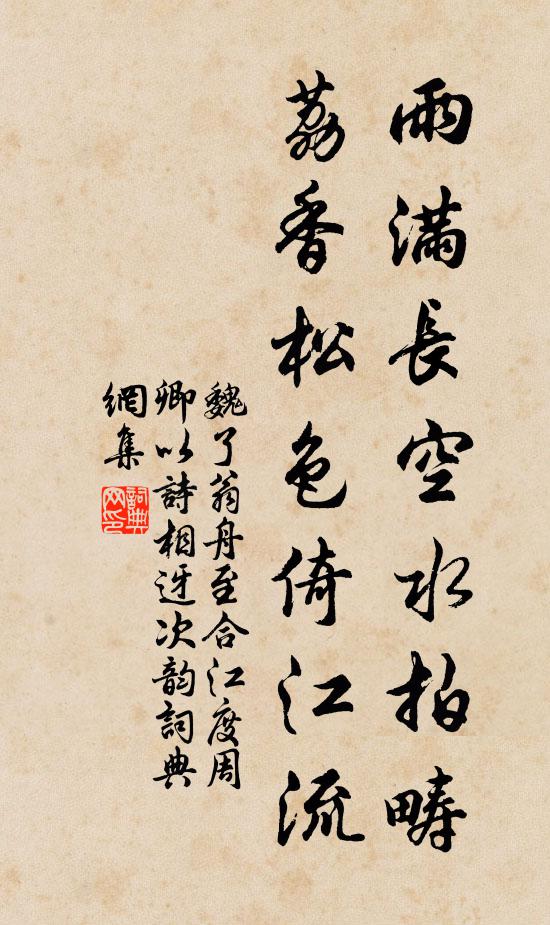 雨滿長空水拍疇
荔香松色倚江流
魏了翁舟至合江度周
卿以詩相迓次韵詞典
網集
詞典網印